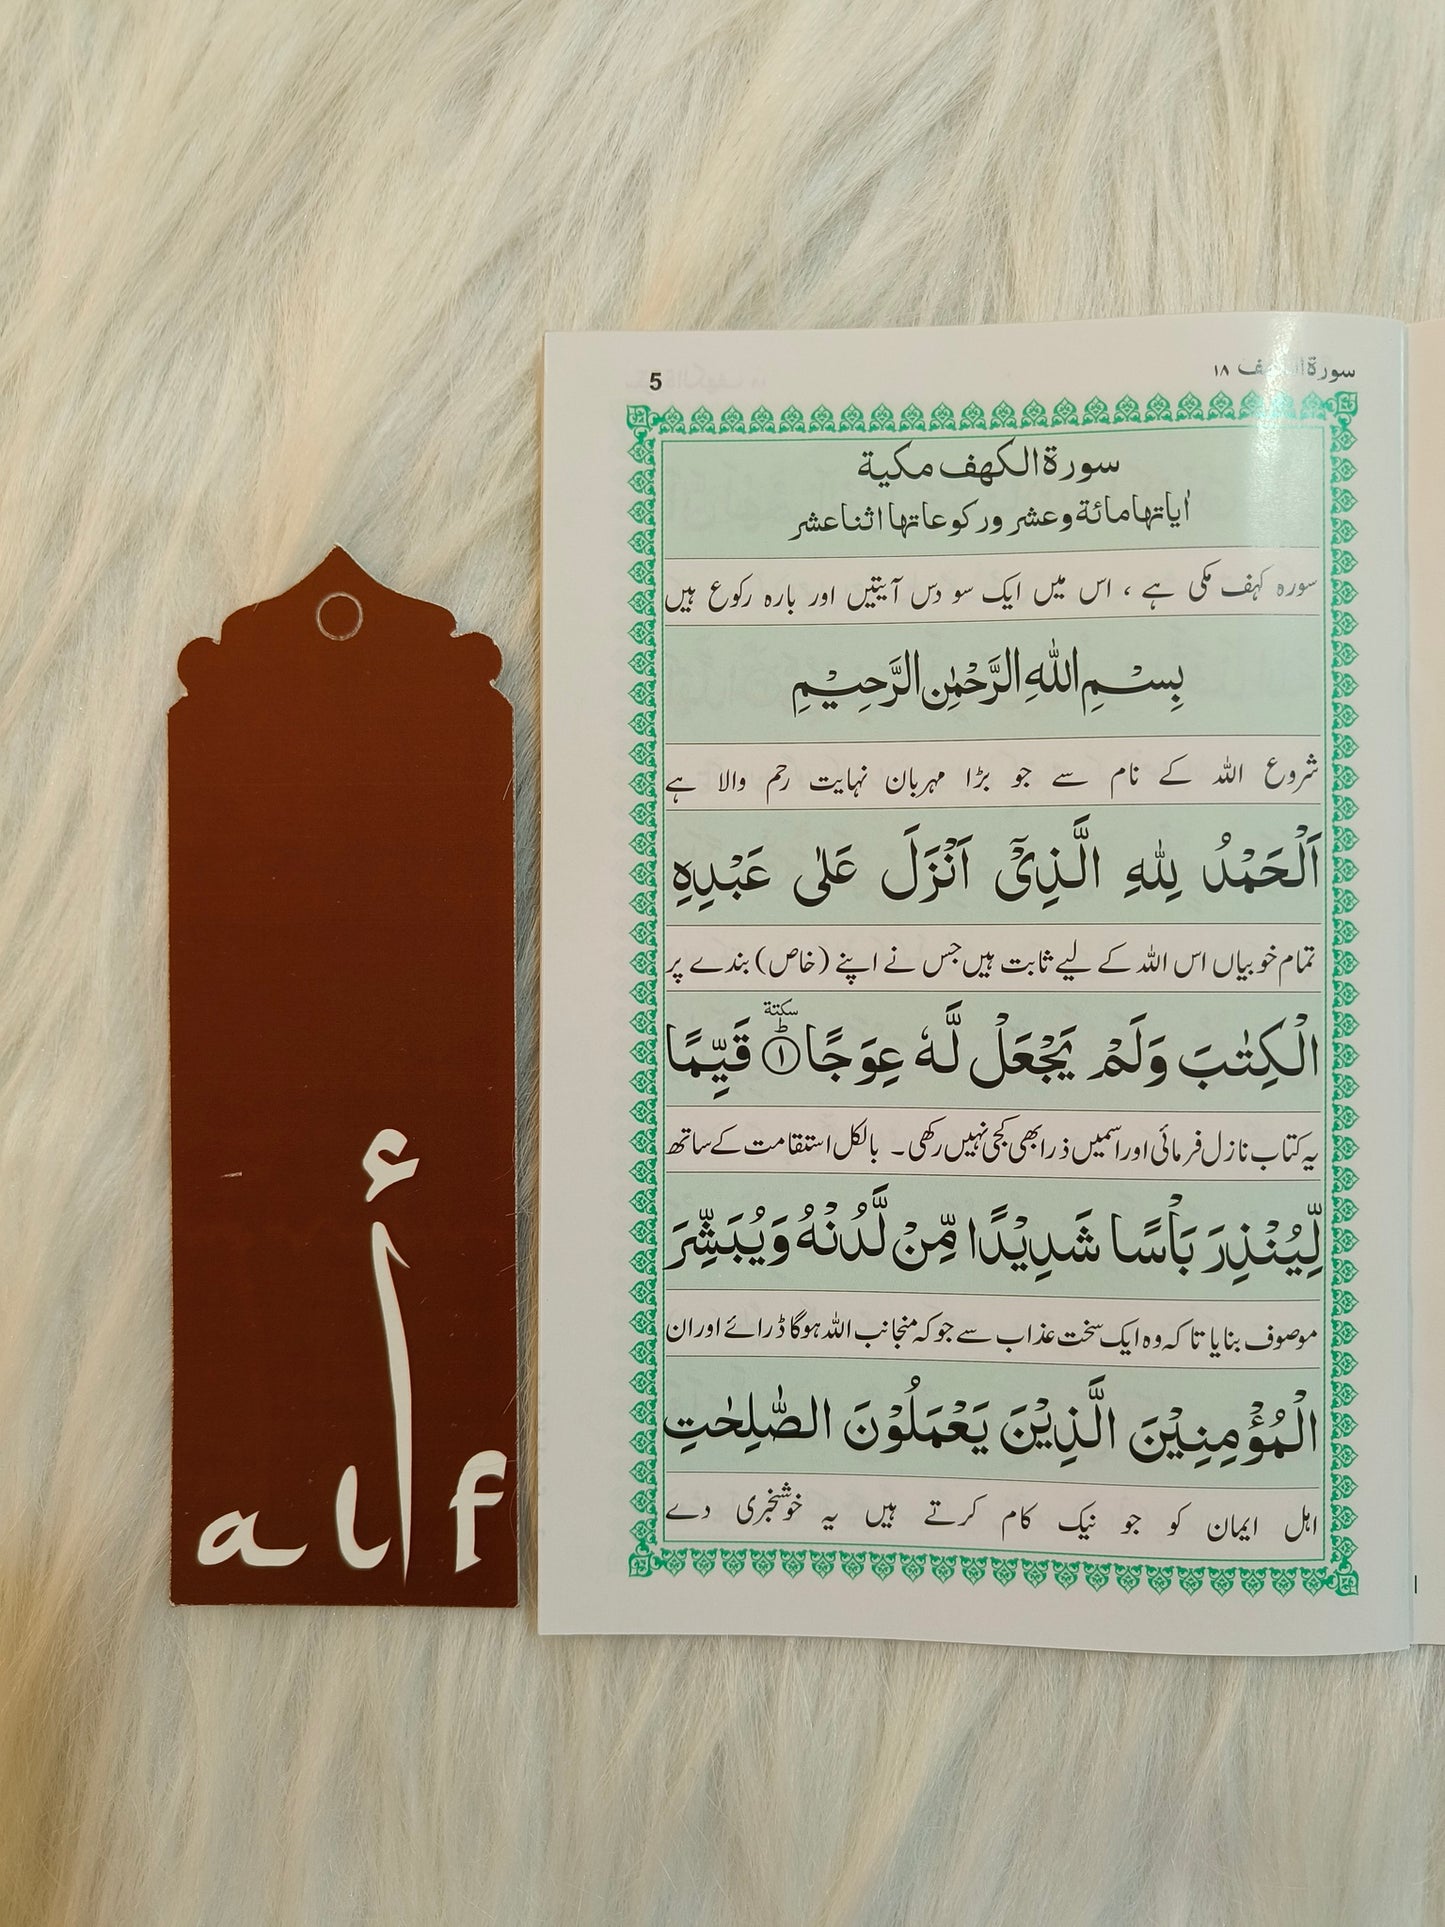 أ
alf
5
سورة الكهف ١٨
سورة الكهف مكية
اٰياتها مائة وعشر وركوعاتها اثنا عشر
سورہ کہف مکی ہے ، اس میں ایک سو دس آیتیں اور بارہ رکوع ہیں
بِسْمِ اللّٰهِ الرَّحْمٰنِ الرَّحِيْمِ
شروع اللہ کے نام سے جو بڑا مہربان نہایت رحم والا ہے
اَلْحَمْدُ لِلّٰهِ الَّذِيْٓ اَنْزَلَ عَلٰى عَبْدِهِ
تمام خوبیاں اس اللہ کے لیے ثابت ہیں جس نے اپنے (خاص) بندے پر
الْكِتٰبَ وَلَمْ يَجْعَلْ لَّهٗ عِوَجًا ؕ سكتة ١ قَيِّمًا
یہ کتاب نازل فرمائی اور اسمیں ذرا بھی کجی نہیں رکھی۔ بالکل استقامت کے ساتھ
لِّيُنْذِرَ بَاْسًا شَدِيْدًا مِّنْ لَّدُنْهُ وَيُبَشِّرَ
موصوف بنایا تا کہ وہ ایک سخت عذاب سے جو کہ منجانب اللہ ہوگا ڈرائے اور ان
الْمُؤْمِنِيْنَ الَّذِيْنَ يَعْمَلُوْنَ الصّٰلِحٰتِ
اہل ایمان کو جو نیک کام کرتے ہیں یہ خوشخبری دے